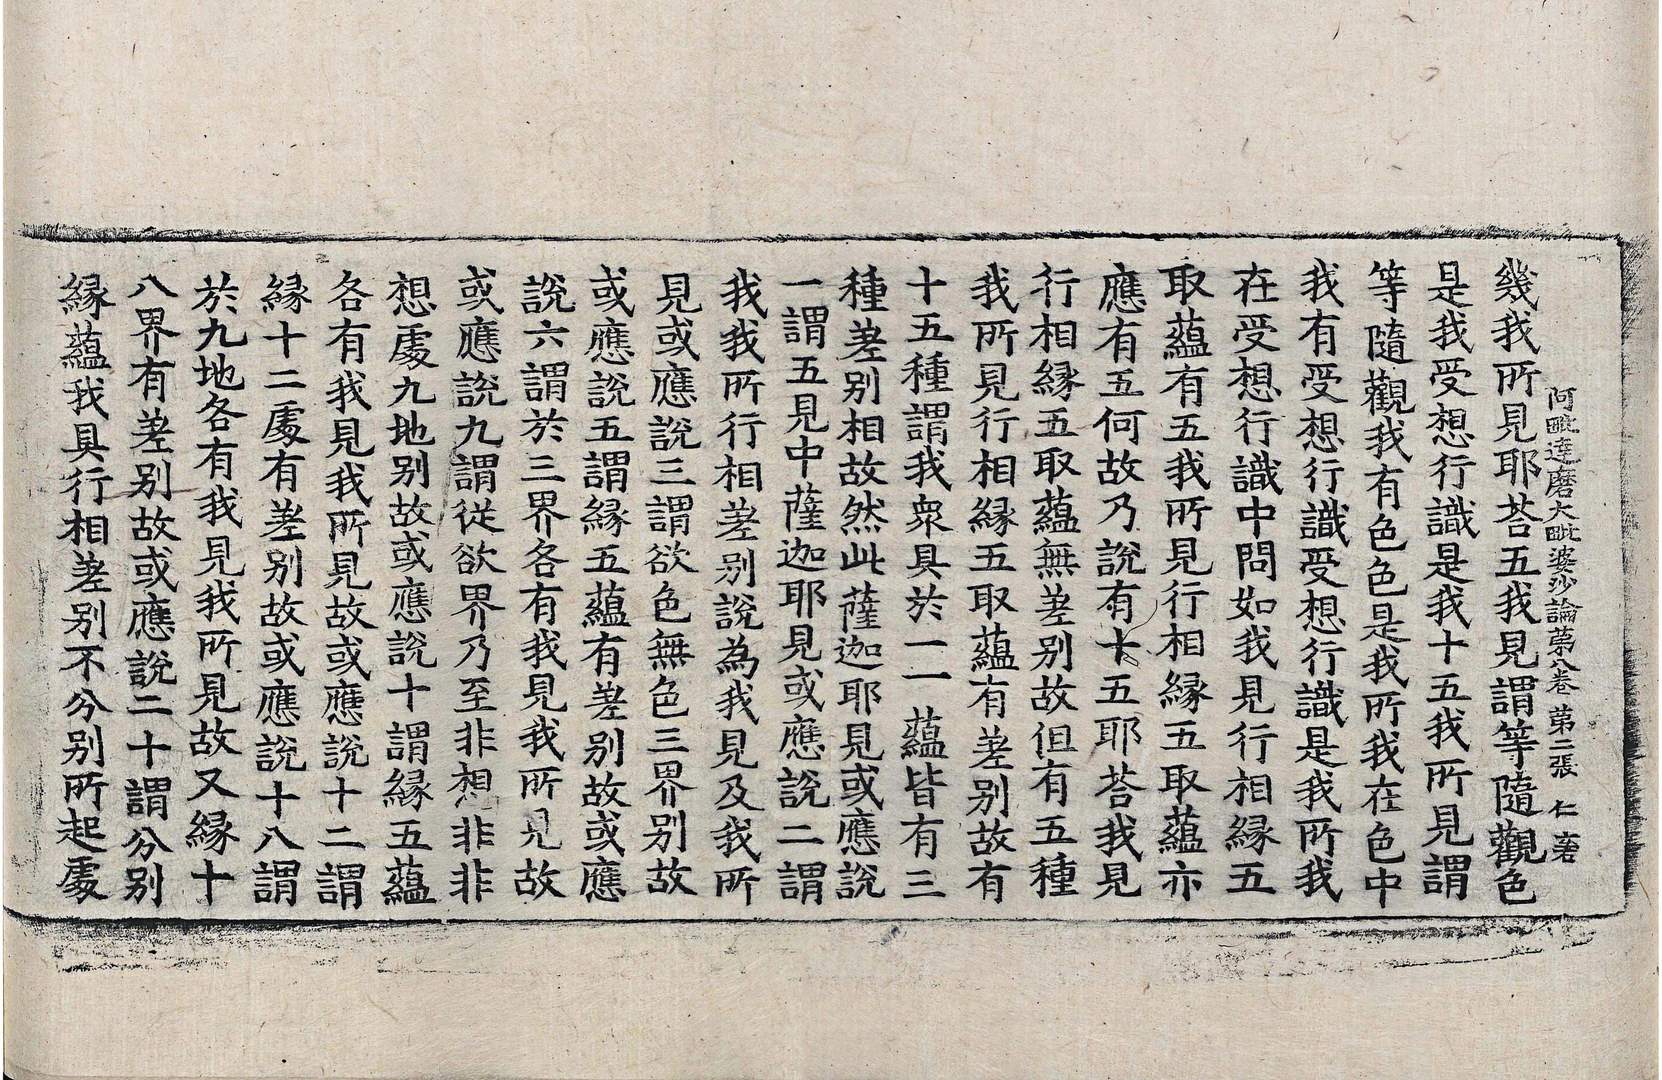 阿毗達磨大毗婆沙論第八卷 第二張 仁
幾我所見耶荅五我見謂等隨觀色
是我受想行識是我十五我所見謂
等隨觀我有色色是我所我在色中
我有受想行識受想行識是我所我
在受想行識中問如我見行相緣五
取蘊有五我所見行相緣五取蘊亦
應有五何故乃說有十五耶荅我見
行相緣五取蘊無差別故但有五種
我所見行相緣五取蘊有差別故有
十五種謂我衆具於一一蘊皆有三
種差別相故然此薩迦耶見或應說
一謂五見中薩迦耶見或應說二謂
我我所行相差別說為我見及我所
見或應說三謂欲色無色三界別故
或應說五謂緣五蘊有差別故或應
說六謂於三界各有我見我所見故
或應說九謂從欲界乃至非想非非
想處九地別故或應說十謂緣五蘊
各有我見我所見故或應說十二謂
緣十二處有差別故或應說十八謂
於九地各有我見我所見故又緣十
八界有差別故或應說二十謂分別
緣蘊我具行相差別不分別所起處